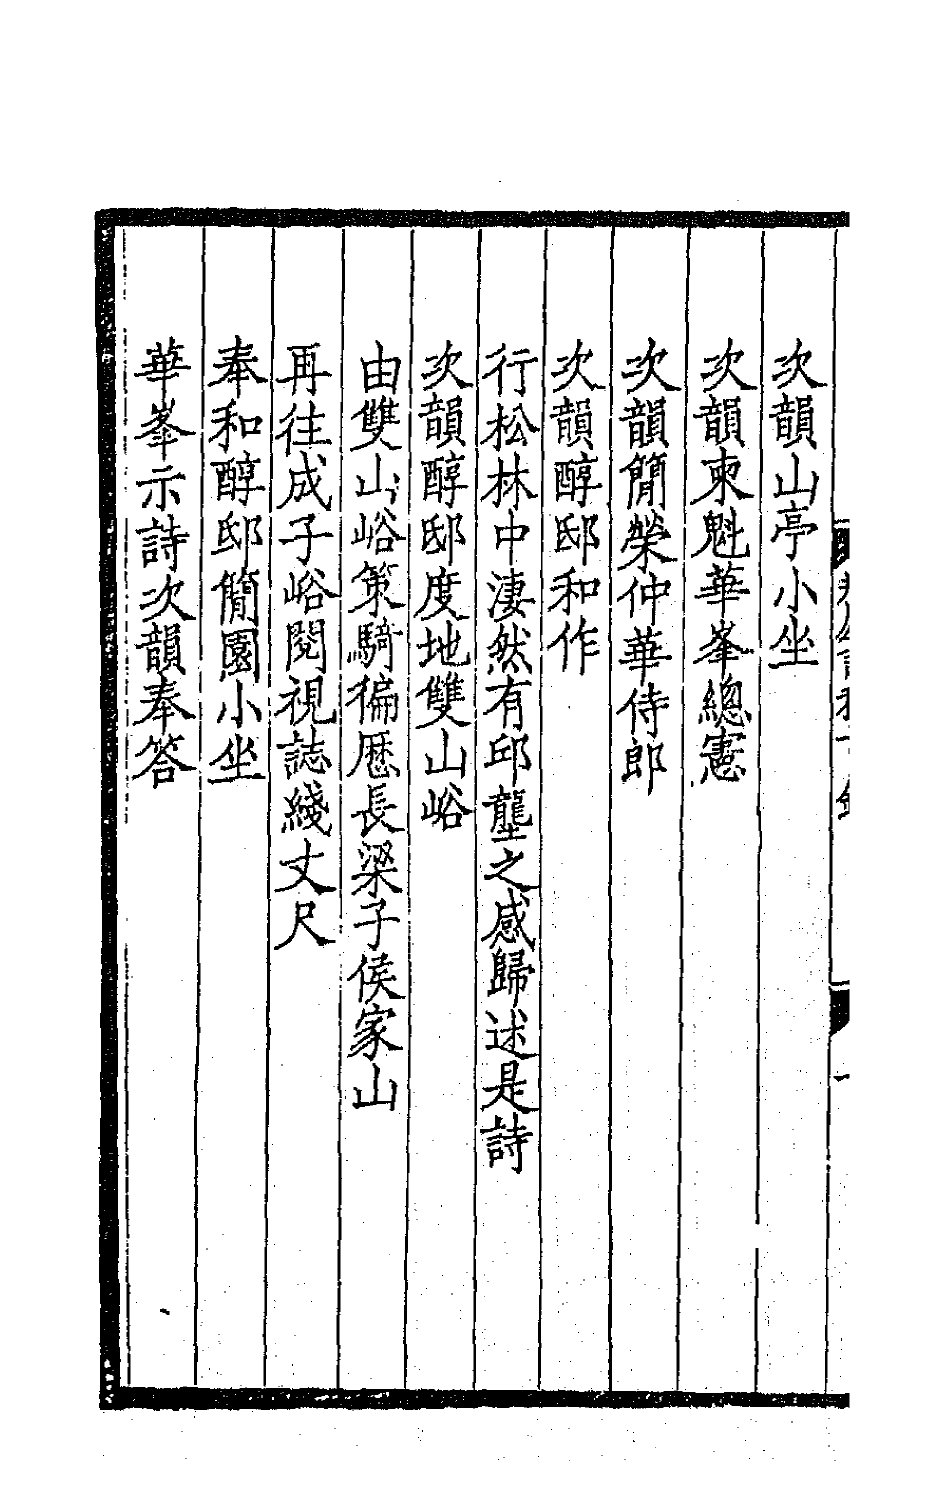 次韻山亭小坐
次韻東魁華峯總憲
次韻簡榮仲華侍郎
次韻醇邸和作
行松林中淒然有邱壟之感歸述是詩
次韻醇邸度地雙山峪
由雙山峪策騎徧歷長梁子侯家山
再往成子峪閱視誌綫丈尺
奉和醇邸蕳園小坐
華峯示詩次韻奉答